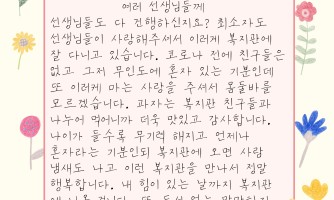 여러 선생님들께
선생님들도 다 건행하신지요? 최소자도
선생님들이 사랑해주셔서 이러게 복지관에
잘 다니고 있습니다. 코로나 전에 친구들은
없고 그저 무인도에 혼자 있는 기분인데
또 이러게 마는 사랑을 주셔서 몸둘바를
모르겠습니다. 과자는 복지관 친구들과
나누어 먹어니까 더욱 맛있고 감사합니다.
나이가 들수록 무기력 해지고 언제나
혼자라는 기분인되 복지관에 오면 사람
냄새도 나고 이런 복지관을 만나서 정말
행복합니다. 내 힘이 있는 날까지 복지관